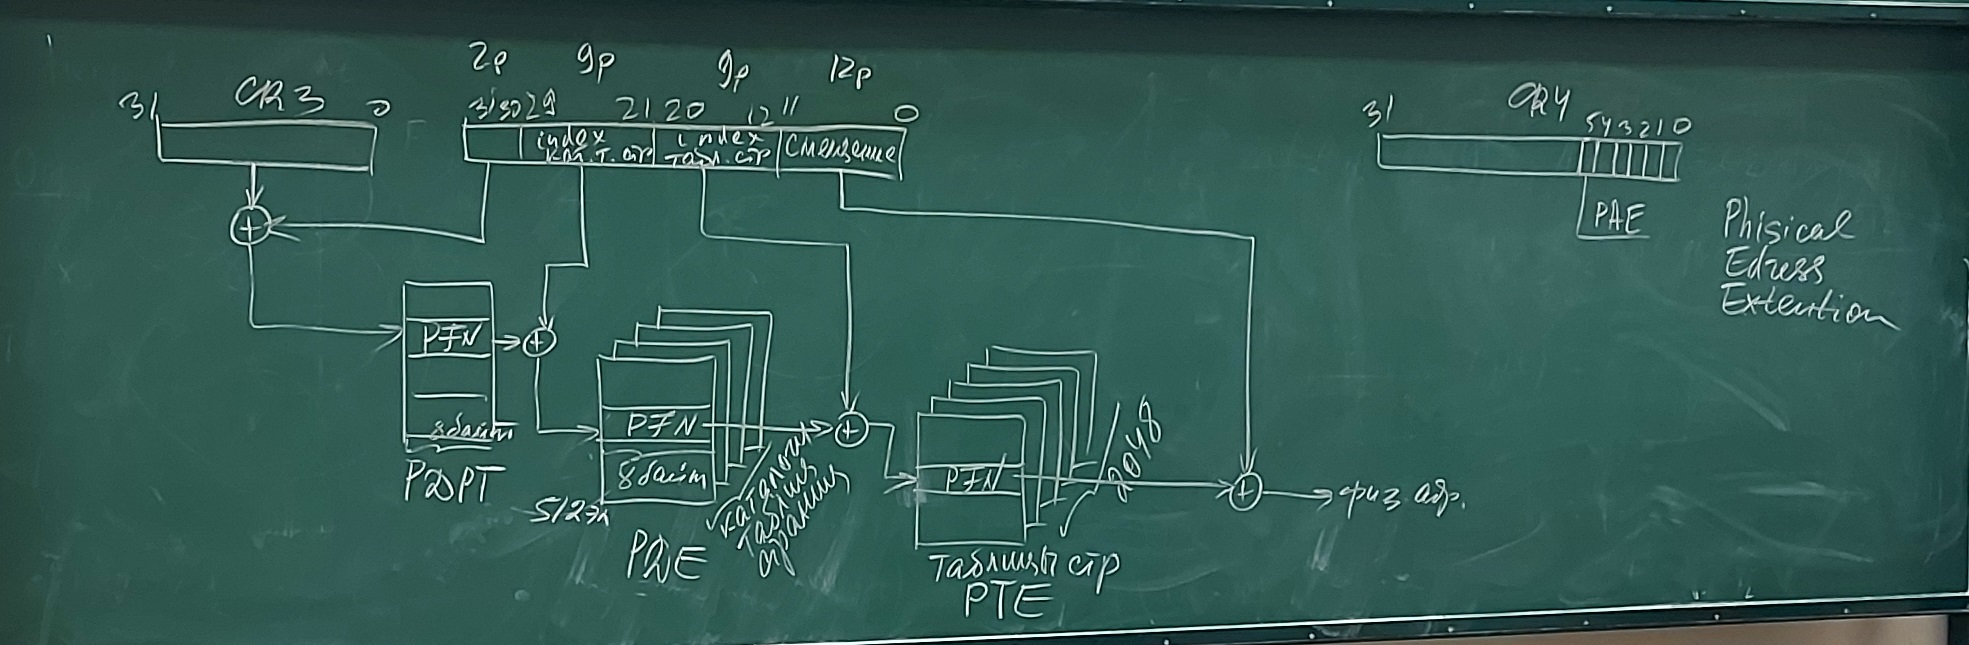 2р 9р 9р 12р
31 CR3 0
31 30 29 21 20 12 11 0
index кат.т.стр
index табл.стр
Смещение
31 CR4 5 4 3 2 1 0
PAE
Phisical
Edress
Extention
PFN
8 байт
PDPT
PFN
8 байт
512 эл
PDE
каталоги
таблиц
страниц
PFN
2048
таблицы стр
PTE
физ. адр.